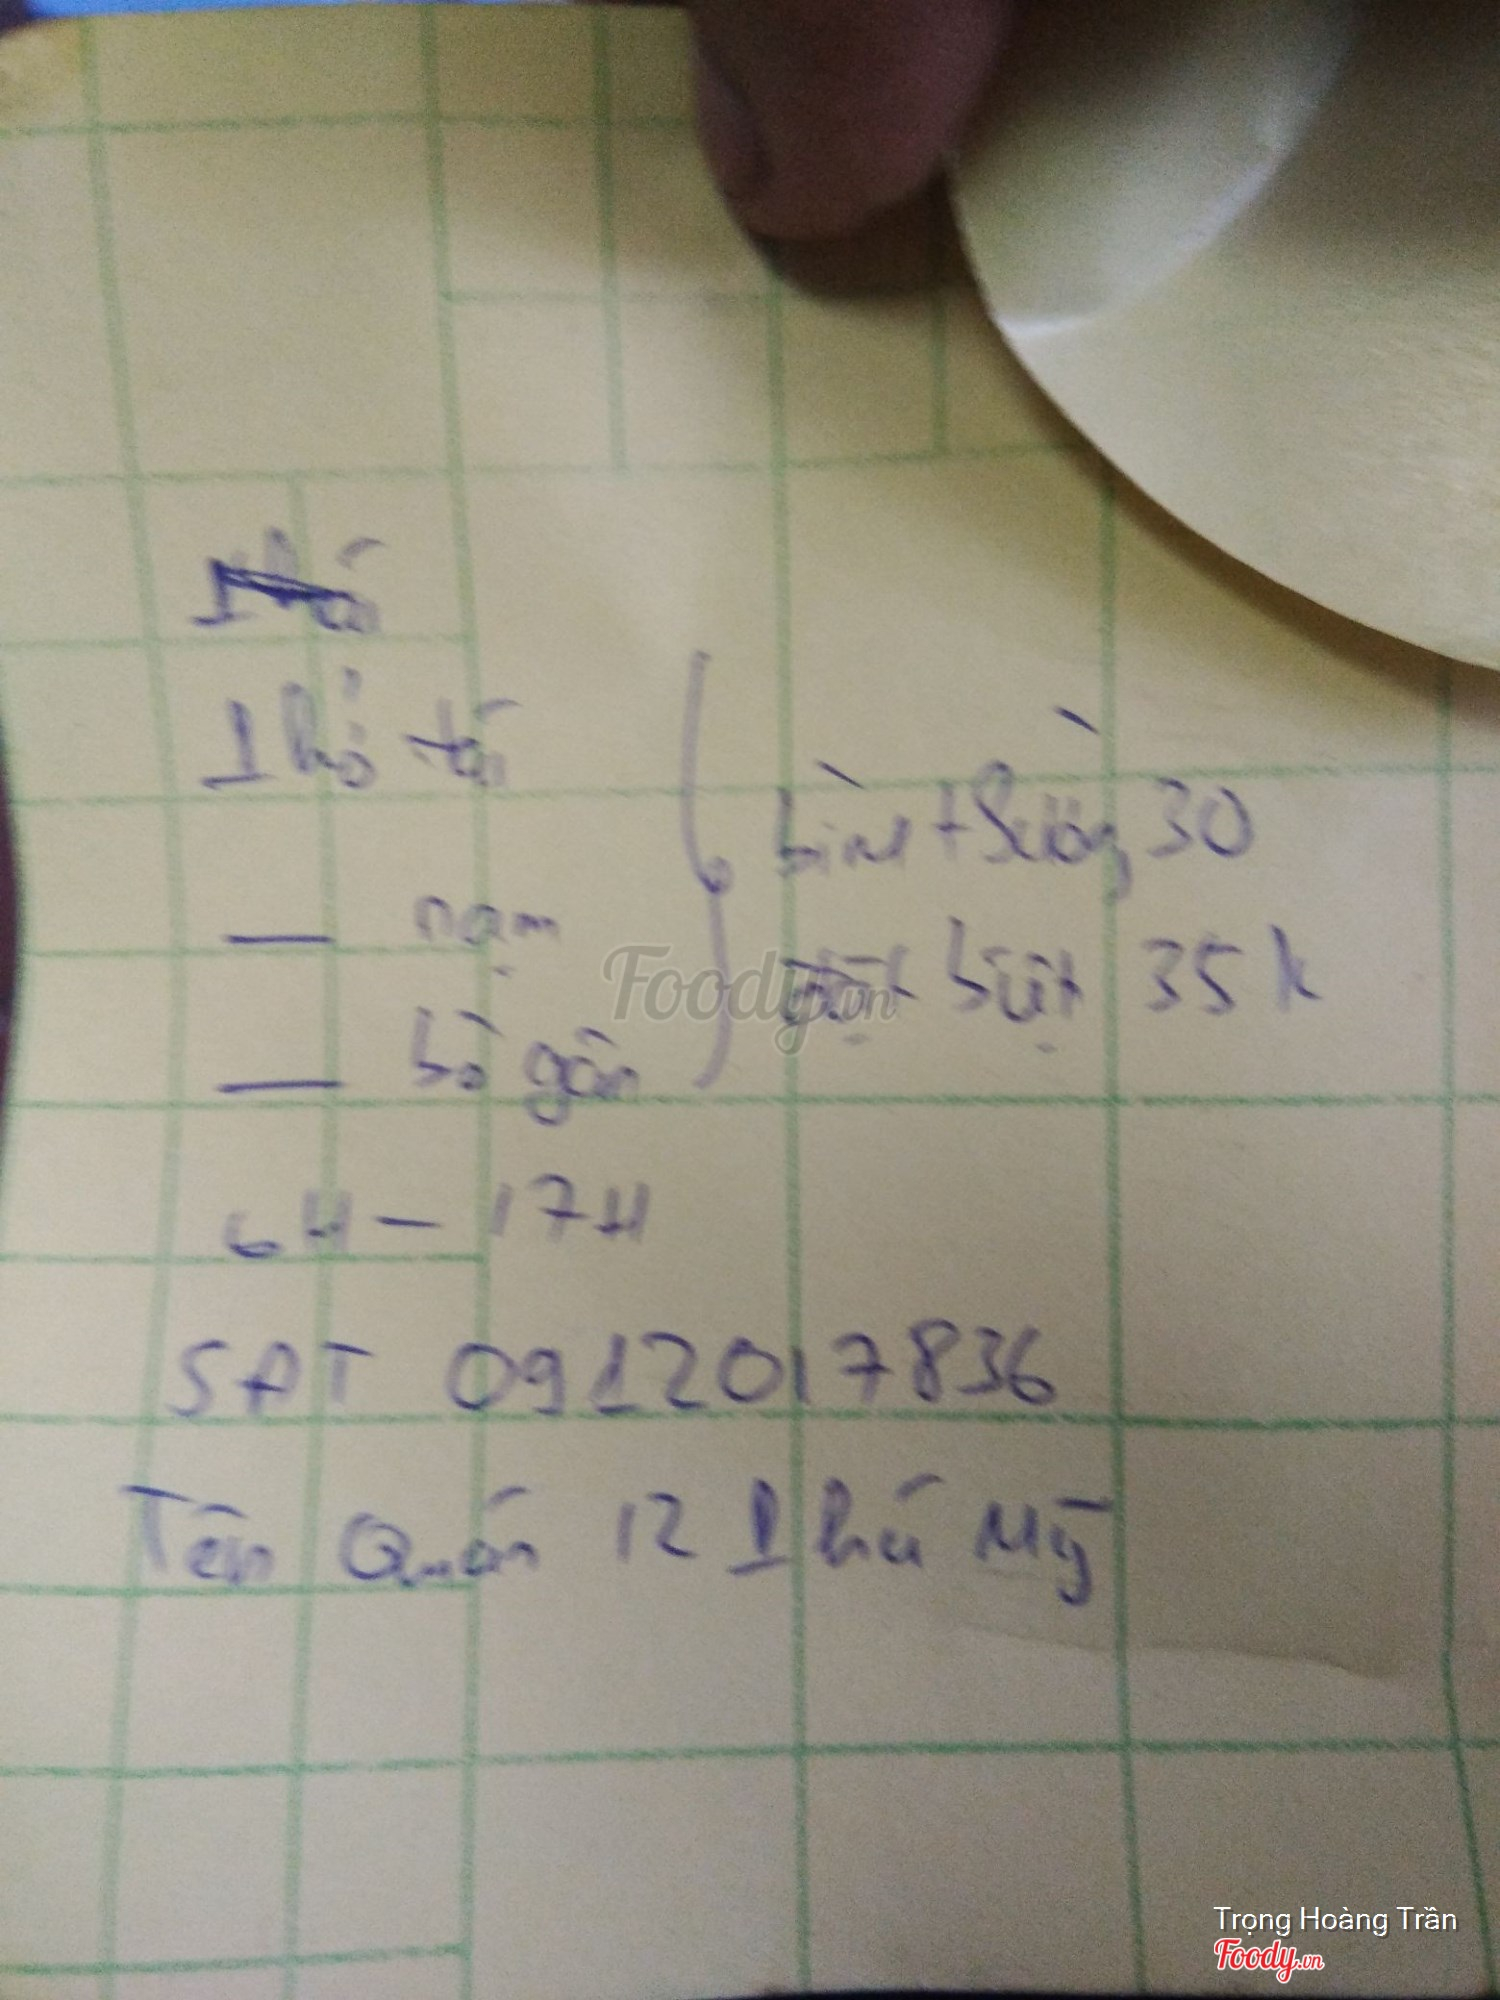 Phở tái
— nạm
— bò gân
bình thường 30
đặt biệt 35k
6H — 17H
SĐT 0912017836
Tên Quán 12 Phú Mỹ
Foody.vn
Trọng Hoàng Trần
Foody.vn